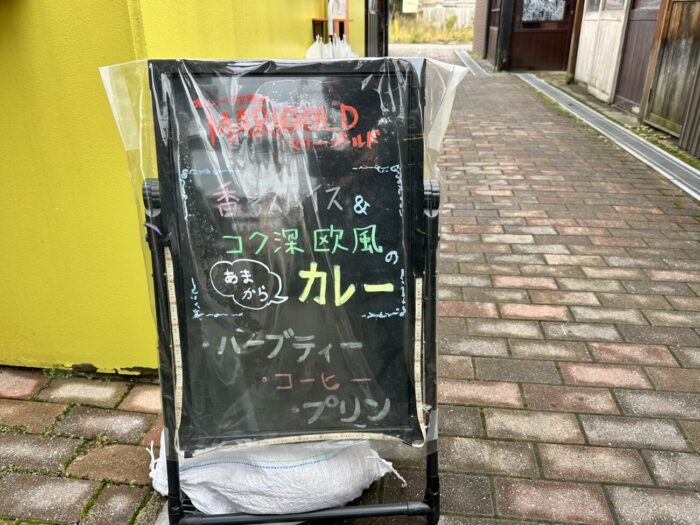 MARIGOLD
マリーゴールド
香るスパイス&
コク深欧風の
あまから
カレー
・ハーブティー
・コーヒー
・プリン